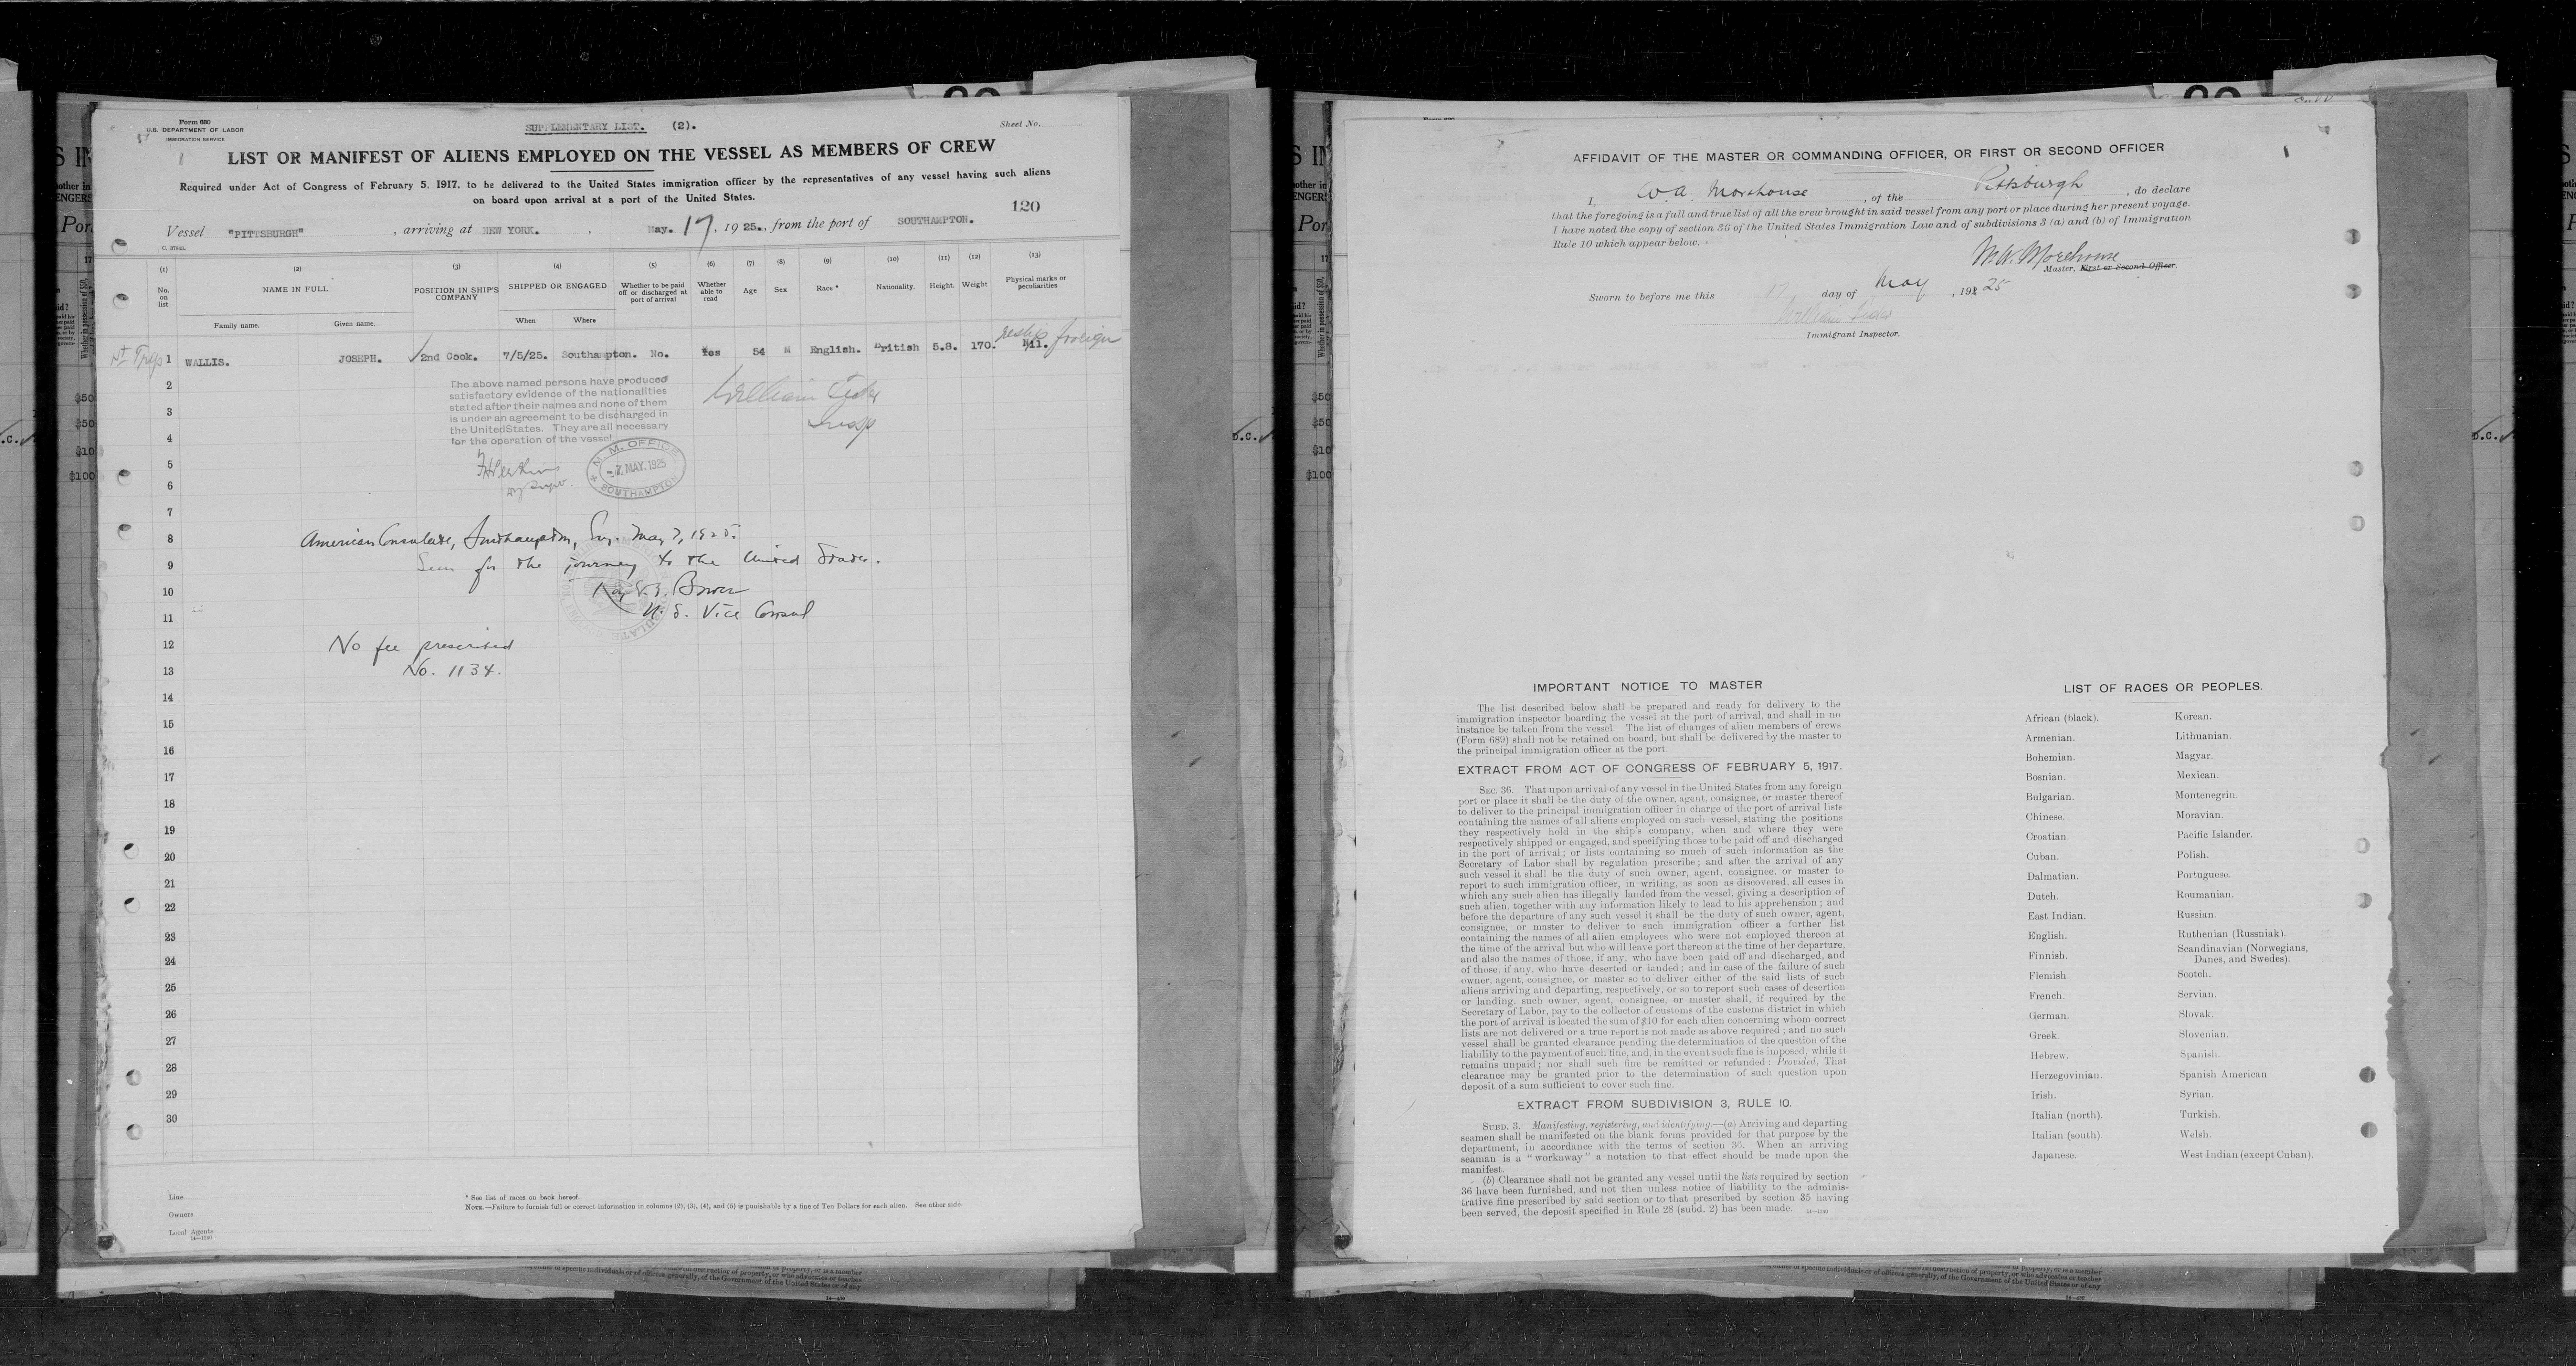 Form 680
U.S. DEPARTMENT OF LABOR
IMMIGRATION SERVICE
SUPPLEMENTARY LIST. (2).
Sheet No.
LIST OR MANIFEST OF ALIENS EMPLOYED ON THE VESSEL AS MEMBERS OF CREW
Required under Act of Congress of February 5, 1917, to be delivered to the United States immigration officer by the representatives of any vessel having such aliens
on board upon arrival at a port of the United States.
120
Vessel "PITTSBURGH", arriving at NEW YORK. , May. 17, 1925., from the port of SOUTHAMPTON.
(1) (2) (3) (4) (5) (6) (7) (8) (9) (10) (11) (12) (13)
No. on list
NAME IN FULL
Family name. Given name.
POSITION IN SHIP'S COMPANY
SHIPPED OR ENGAGED
When Where
Whether to be paid off or discharged at port of arrival
Whether able to read
Age
Sex
Race *
Nationality.
Height.
Weight
Physical marks or peculiarities
1 WALLIS. JOSEPH. 2nd Cook. 7/5/25. Southampton. No. Yes 54 M English. British 5.8. 170. Nil.
reship foreign
2
3
4
5
6
7
8
9
10
11
12
13
14
15
16
17
18
19
20
21
22
23
24
25
26
27
28
29
30
The above named persons have produced
satisfactory evidence of the nationalities
stated after their names and none of them
is under an agreement to be discharged in
the United States. They are all necessary
for the operation of the vessel
William
Insp
M. M. OFFICE
-7 MAY.1925
SOUTHAMPTON
American Consulate, Southampton, Eng. May 7, 1925.
Seen for the journey to the United States.
Roy E. B. Bower
U. S. Vice Consul
No fee prescribed
No. 1134.
Line
Owners
Local Agents
* See list of races on back hereof.
NOTE.—Failure to furnish full or correct information in columns (2), (3), (4), and (5) is punishable by a fine of Ten Dollars for each alien. See other side.
AFFIDAVIT OF THE MASTER OR COMMANDING OFFICER, OR FIRST OR SECOND OFFICER
I, W. A. Morehouse, of the Pittsburgh, do declare
that the foregoing is a full and true list of all the crew brought in said vessel from any port or place during her present voyage.
I have noted the copy of section 36 of the United States Immigration Law and of subdivisions 3 (a) and (b) of Immigration
Rule 10 which appear below.
W. A. Morehouse
Master, First or Second Officer.
Sworn to before me this 17 day of May, 1925
William
Immigrant Inspector.
IMPORTANT NOTICE TO MASTER
The list described below shall be prepared and ready for delivery to the
immigration inspector boarding the vessel at the port of arrival, and shall in no
instance be taken from the vessel. The list of changes of alien members of crews
(Form 689) shall not be retained on board, but shall be delivered by the master to
the principal immigration officer at the port.
EXTRACT FROM ACT OF CONGRESS OF FEBRUARY 5, 1917.
SEC. 36. That upon arrival of any vessel in the United States from any foreign
port or place it shall be the duty of the owner, agent, consignee, or master thereof
to deliver to the principal immigration officer in charge of the port of arrival lists
containing the names of all aliens employed on such vessel, stating the positions
they respectively hold in the ship's company, when and where they were
respectively shipped or engaged, and specifying those to be paid off and discharged
in the port of arrival; or lists containing so much of such information as the
Secretary of Labor shall by regulation prescribe; and after the arrival of any
such vessel it shall be the duty of such owner, agent, consignee, or master to
report to such immigration officer, in writing, as soon as discovered, all cases in
which any such alien has illegally landed from the vessel, giving a description of
such alien, together with any information likely to lead to his apprehension; and
before the departure of any such vessel it shall be the duty of such owner, agent,
consignee, or master to deliver to such immigration officer a further list
containing the names of all alien employees who were not employed thereon at
the time of the arrival but who will leave port thereon at the time of her departure,
and also the names of those, if any, who have been paid off and discharged, and
of those, if any, who have deserted or landed; and in case of the failure of such
owner, agent, consignee, or master so to deliver either of the said lists of such
aliens arriving and departing, respectively, or so to report such cases of desertion
or landing, such owner, agent, consignee, or master shall, if required by the
Secretary of Labor, pay to the collector of customs of the customs district in which
the port of arrival is located the sum of $10 for each alien concerning whom correct
lists are not delivered or a true report is not made as above required; and no such
vessel shall be granted clearance pending the determination of the question of the
liability to the payment of such fine, and, in the event such fine is imposed, while it
remains unpaid; nor shall such fine be remitted or refunded: Provided, That
clearance may be granted prior to the determination of such question upon
deposit of a sum sufficient to cover such fine.
EXTRACT FROM SUBDIVISION 3, RULE 10.
SUBD. 3. Manifesting, registering, and identifying.—(a) Arriving and departing
seamen shall be manifested on the blank forms provided for that purpose by the
department, in accordance with the terms of section 36. When an arriving
seaman is a "workaway" a notation to that effect should be made upon the
manifest.
(b) Clearance shall not be granted any vessel until the lists required by section
36 have been furnished, and not then unless notice of liability to the adminis-
trative fine prescribed by said section or to that prescribed by section 35 having
been served, the deposit specified in Rule 28 (subd. 2) has been made.
LIST OF RACES OR PEOPLES.
African (black).
Armenian.
Bohemian.
Bosnian.
Bulgarian.
Chinese.
Croatian.
Cuban.
Dalmatian.
Dutch.
East Indian.
English.
Finnish.
Flemish.
French.
German.
Greek.
Hebrew.
Herzegovinian.
Irish.
Italian (north).
Italian (south).
Japanese.
Korean.
Lithuanian.
Magyar.
Mexican.
Montenegrin.
Moravian.
Pacific Islander.
Polish.
Portuguese.
Roumanian.
Russian.
Ruthenian (Russniak).
Scandinavian (Norwegians,
Danes, and Swedes).
Scotch.
Servian.
Slovak.
Slovenian.
Spanish.
Spanish American
Syrian.
Turkish.
Welsh.
West Indian (except Cuban).